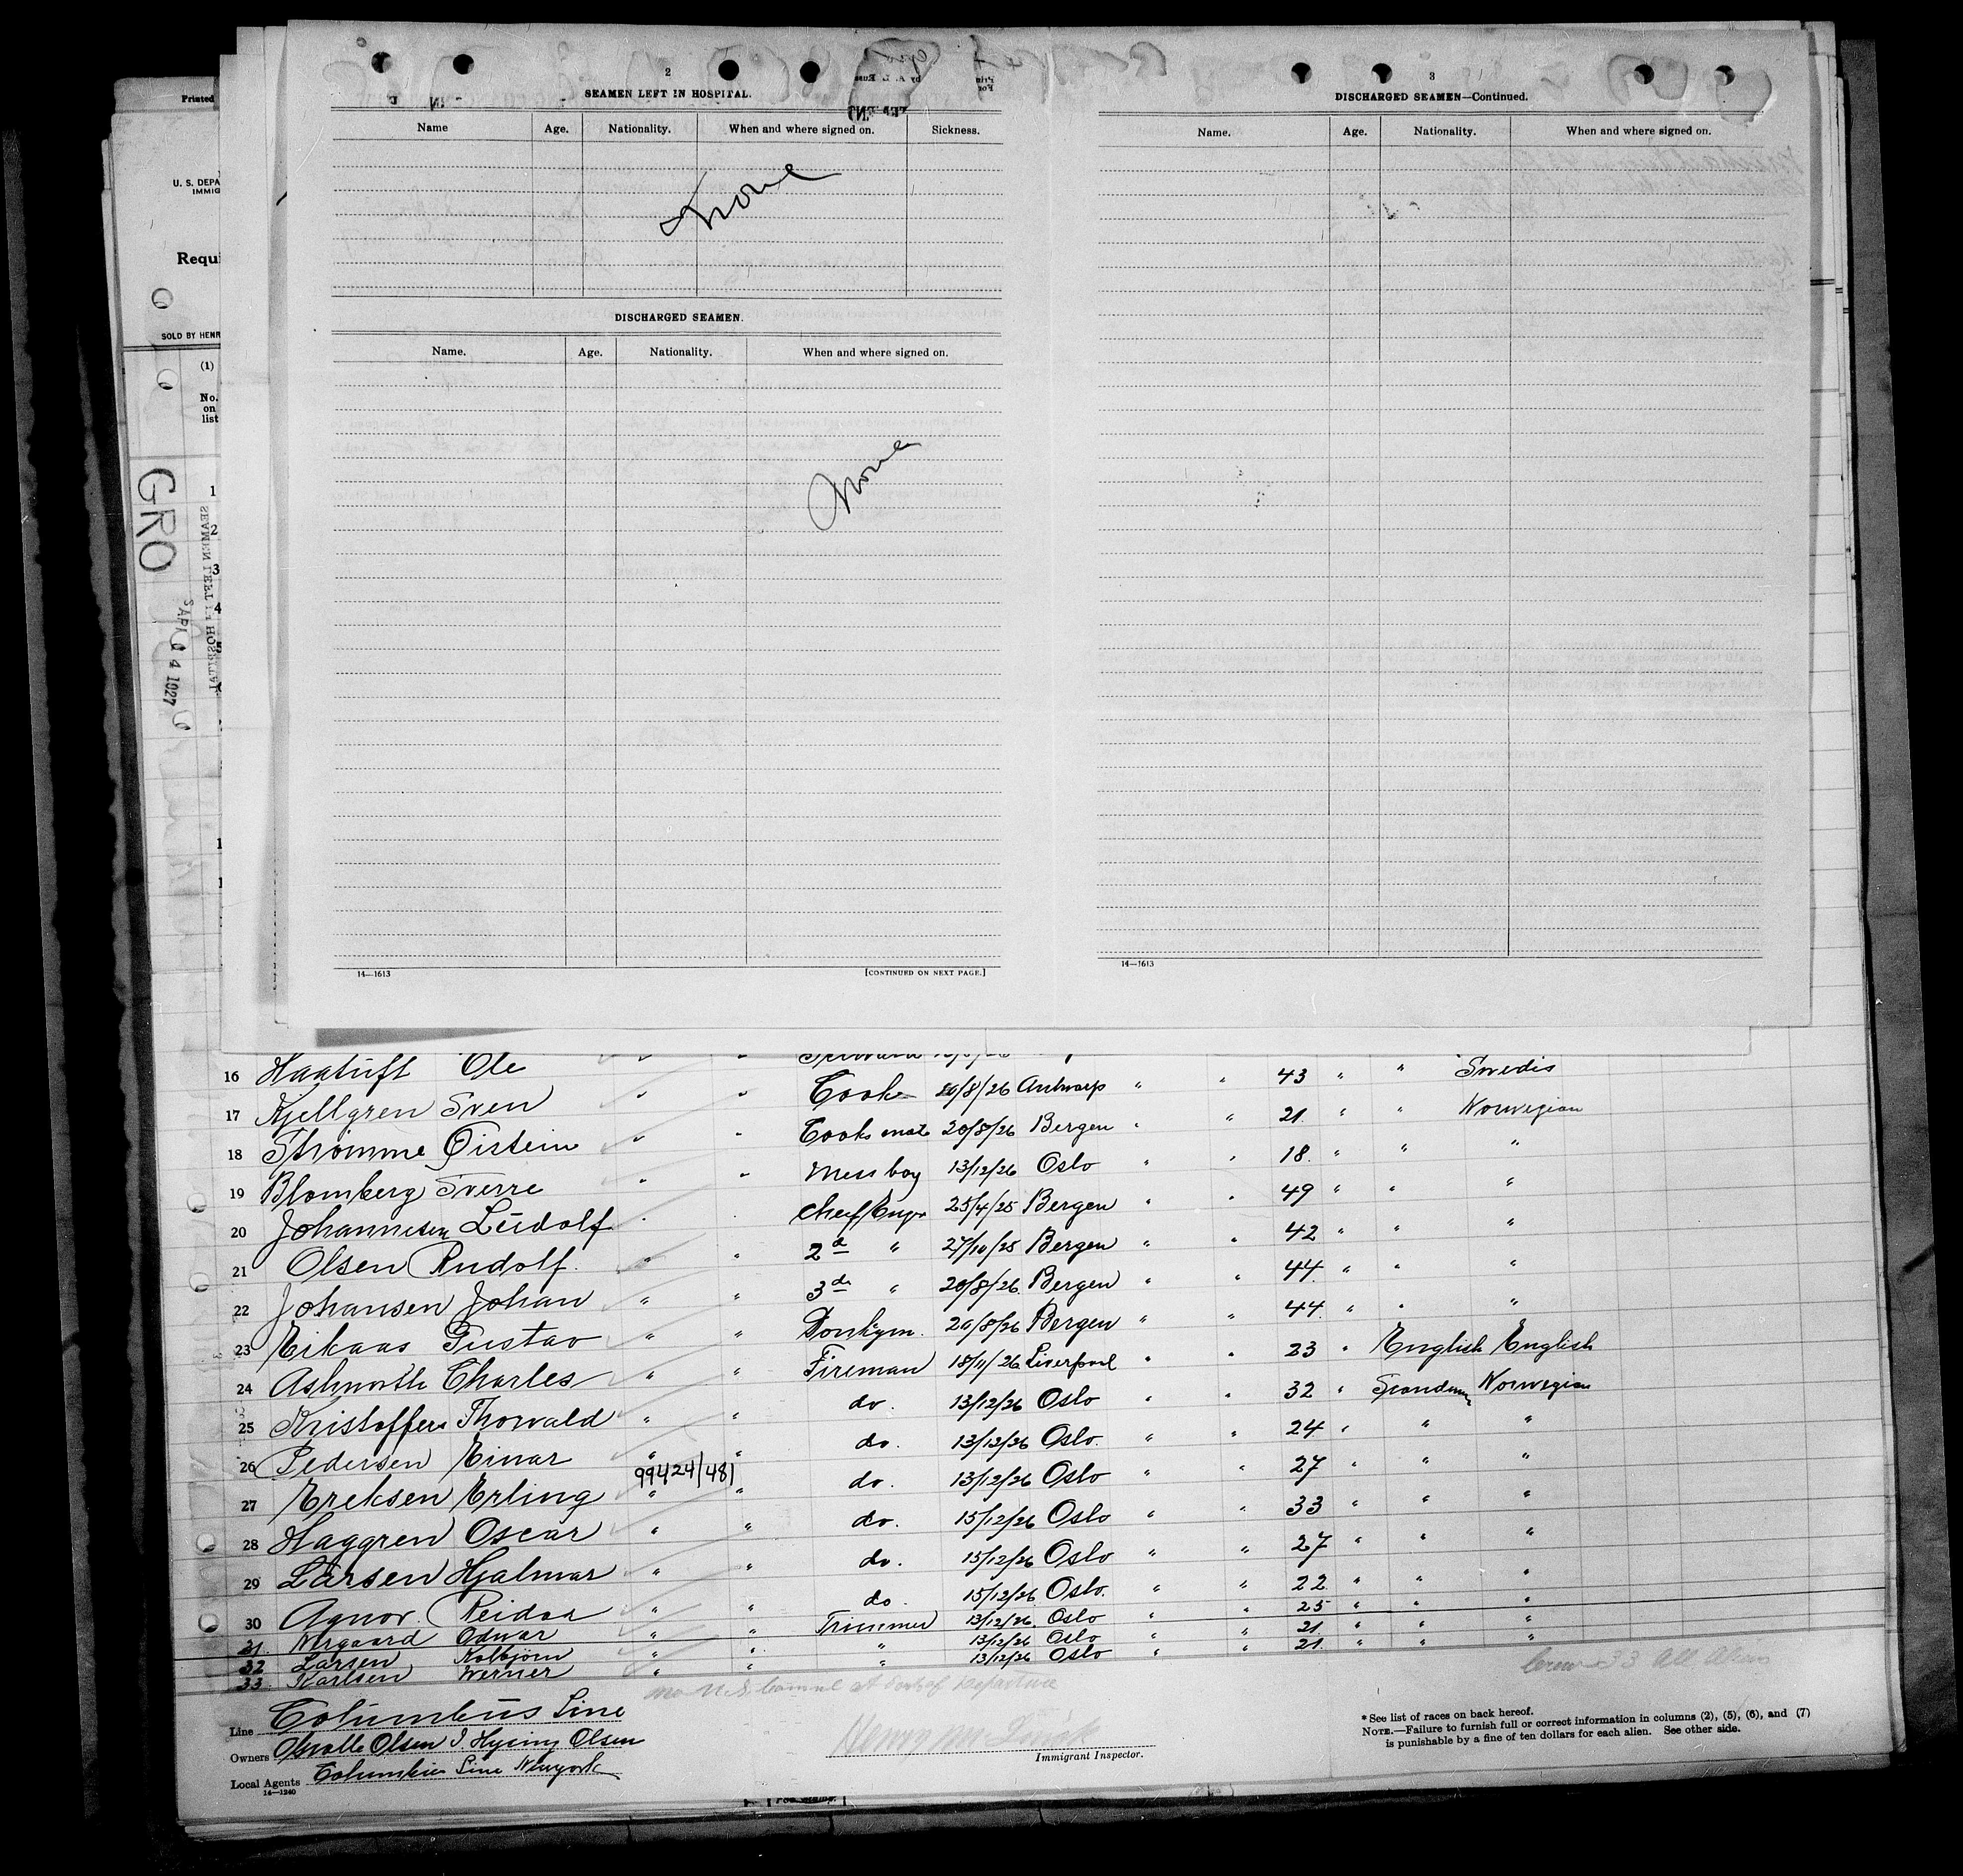 2
SEAMEN LEFT IN HOSPITAL.
Name Age. Nationality. When and where signed on. Sickness.
None
DISCHARGED SEAMEN.
Name. Age. Nationality. When and where signed on.
None
14—1613 [CONTINUED ON NEXT PAGE.]
3
DISCHARGED SEAMEN—Continued.
Name. Age. Nationality. When and where signed on.
14—1613
Printed
U. S. DEPA
IMMIG
Requi
SOLD BY HENR
(1)
No.
on
list
GRO
1
2
3
4
5
SEAMEN LEFT IN HOSPITAL
4 1927
16 Haatuft Ole
17 Kjellgren Sven " " Cook 20/8/26 Antwerp " " 43 " " Swedis
18 Strømme Øistein " " Cooks mate 20/8/26 Bergen " " 21. " " Norwegian
19 Blomberg Sverre " " Mess boy 13/12/26 Oslo " " 18. " " "
20 Johannesen Lüdolf " " Cheef/Engr 25/4/25 Bergen " " 49 " " "
21 Olsen Rudolf. " " 2d " 27/10/25 Bergen " " 42 " " "
22 Johansen Johan " " 3d " 20/8/26. Bergen " " 44 " " "
23 Eikaas Gustav " " Donkym. 20/8/26 Bergen " " 44. " " "
24 Ashworth Charles " " Fireman 18/11/26 Liverpool " " 23 " English English
25 Kristoffers Thorvald " " do. 13/12/26 Oslo " " 32 " Norwegian
26 Pedersen Einar " " do. 13/12/26 Oslo. " " 24 " " "
99424/481
27 Ereksen Erling " " do. 13/12/26 Oslo " " 27 " " "
28 Haggren Oscar " " do. 15/12/26 Oslo " " 33 " " "
29 Larsen Hjalmar " " do. 15/12/26 Oslo " " 27 " " "
30 Agnor. Reidar " " do. 15/12/26 Oslo. " " 22 " " "
31. Odvar " " Trimmer 13/12/26. Oslo " " 25 " " "
32 Larsen Kolbjørn " " " 13/12/26 Oslo " " 21. " " "
33. Karlsen Werner " " " 13/12/26 Oslo " " 21. " " "
Crew 33 All
at of Departure
Line Columbus Line
Owners Olsen Olsen
Local Agents Columbus Line Newyork
14—1240
Henry
Immigrant Inspector.
* See list of races on back hereof.
NOTE.—Failure to furnish full or correct information in columns (2), (5), (6), and (7)
is punishable by a fine of ten dollars for each alien. See other side.